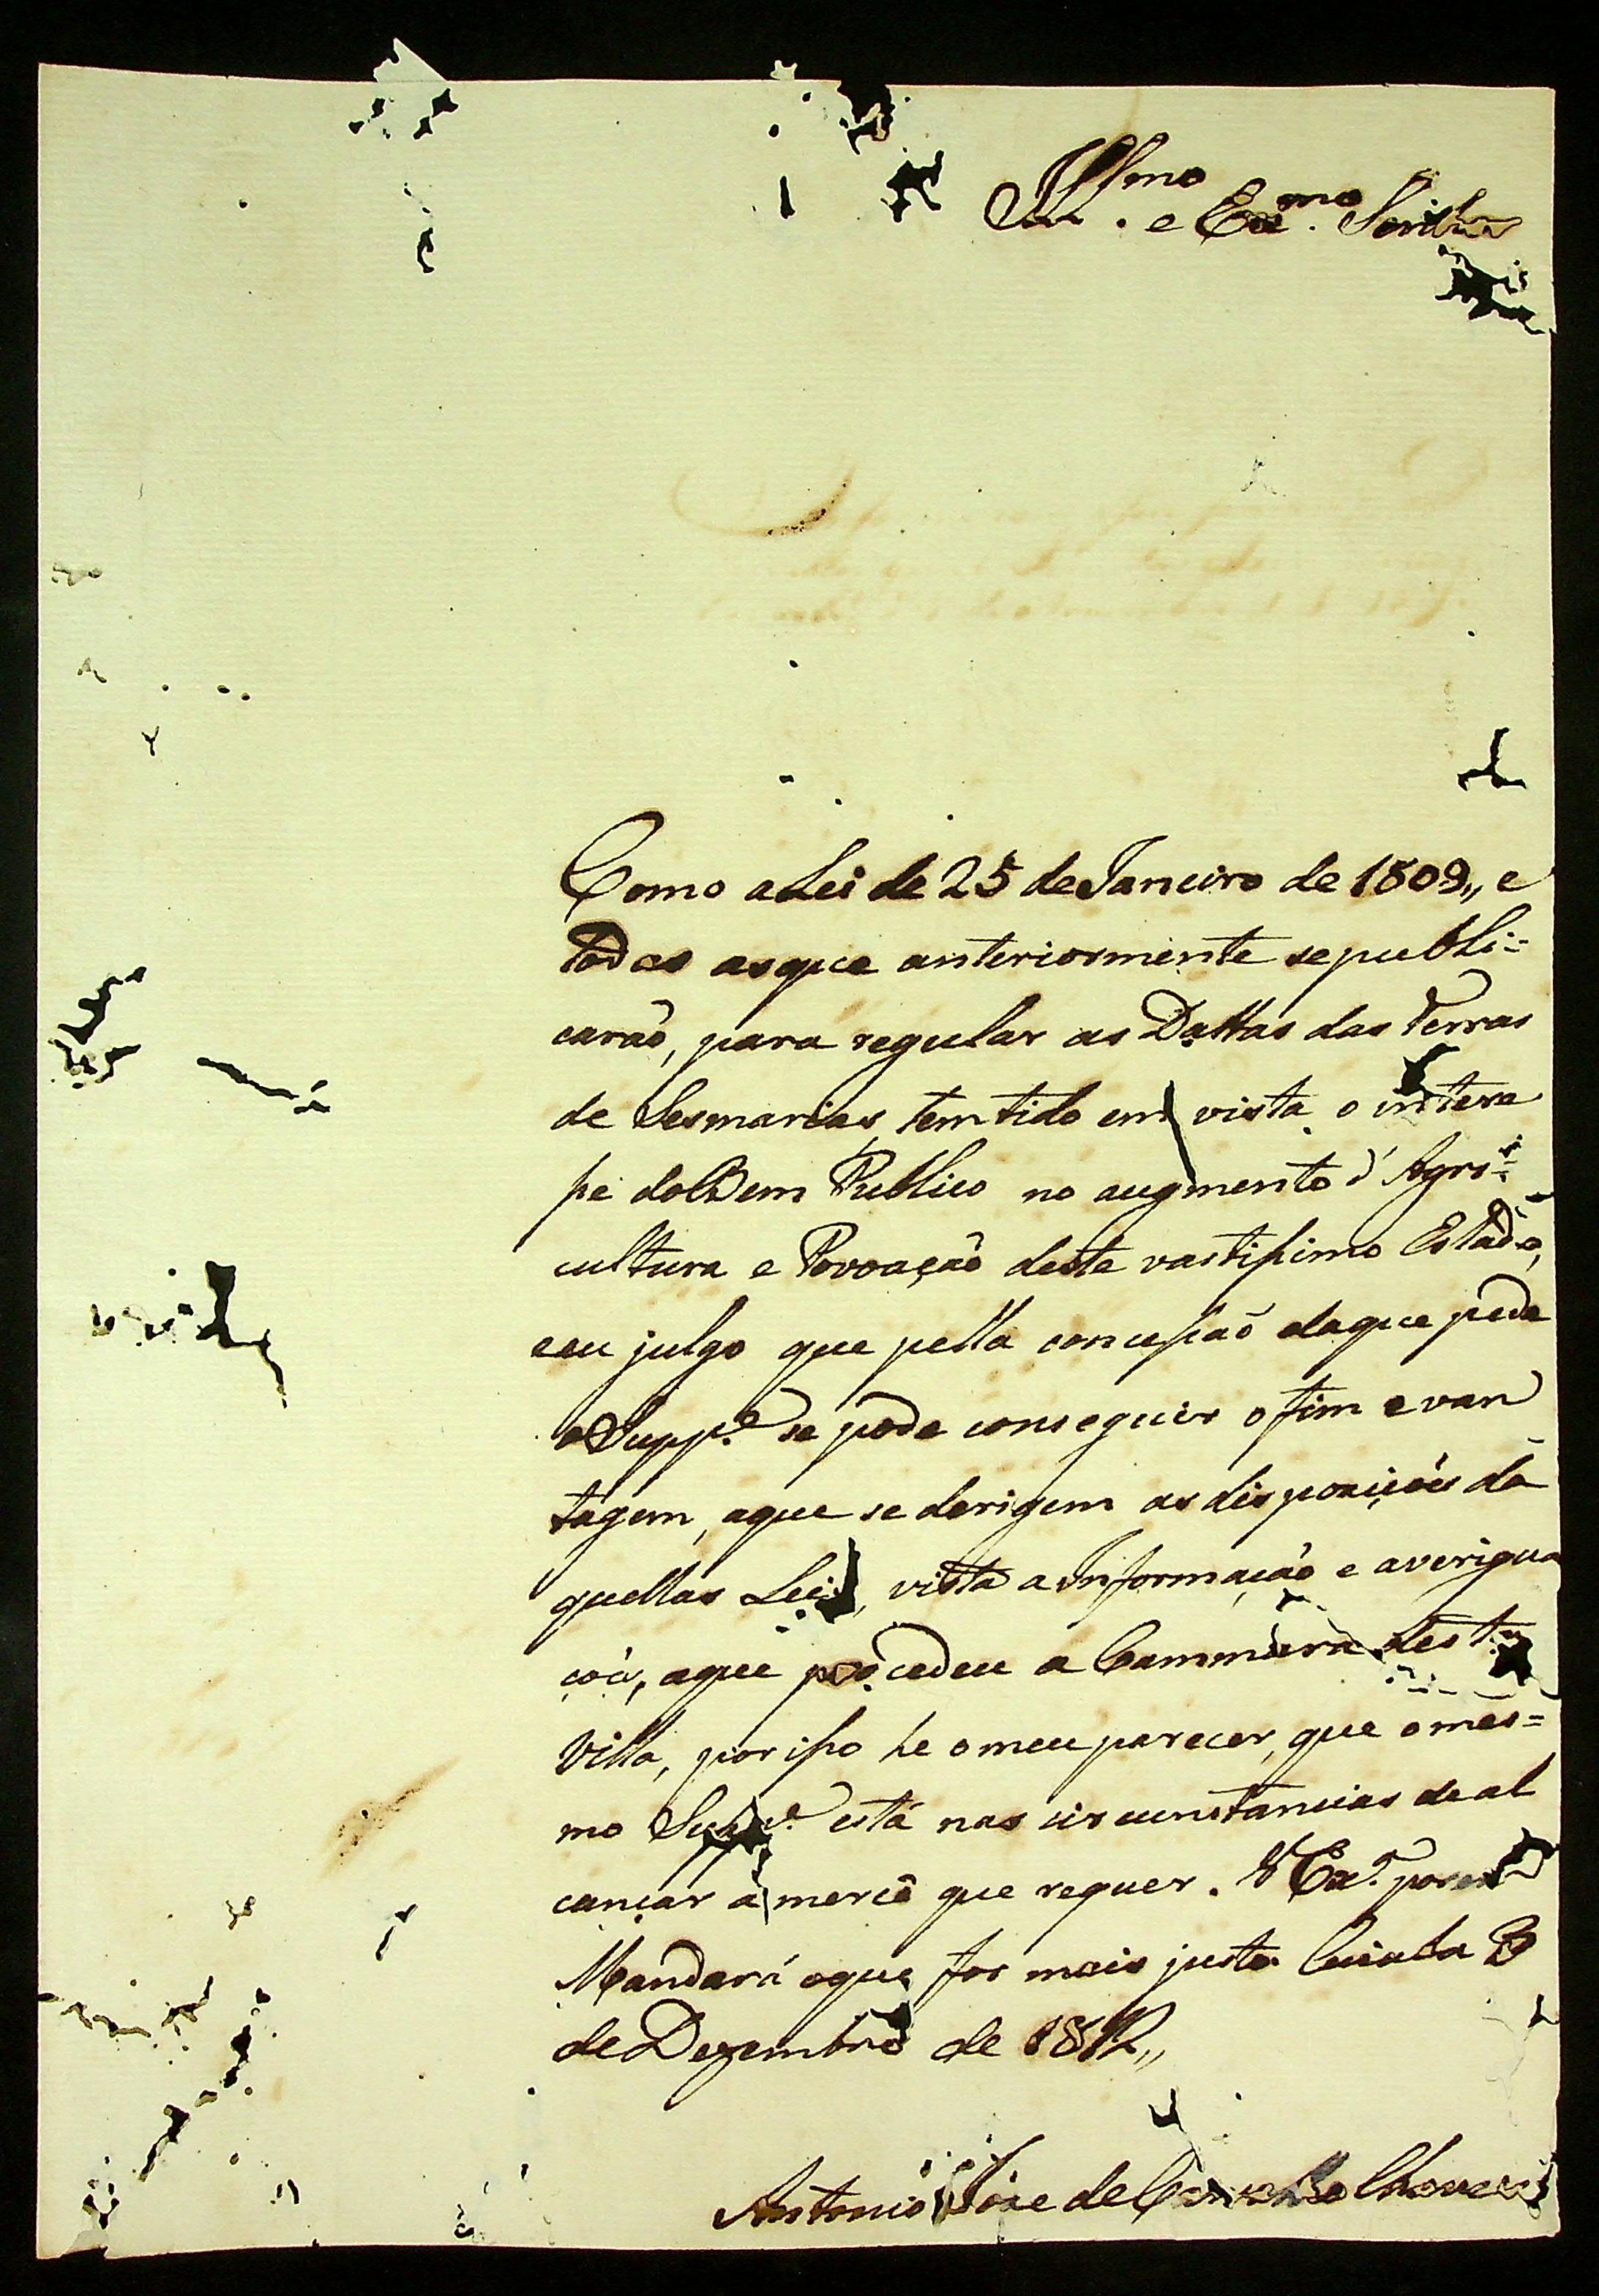 Ill.mo e Ex.mo Senhor
Como a Lei de 25 de Janeiro de 1809,, e
todas as que anteriormente se publi=
carão, para regular as Dattas das terras
de Sesmarias, tem tido em vista o intere
sse do Bem Publico no augmento d'Agri=
cultura e Povoação deste vastissimo Estado,
e eu julgo que pella concessão do que pede
o Supp.e se pode conseguir o fim e van
tagem, a que se derigem as dispozições da
quellas Leis, vista a Informação e averigua
ção, a que procedeu a Cammara desta
Villa, por isso he o meu parecer, que o mes=
mo Supp.e está nas circunstancias de al
cançar a mercê que requer. V Ex.a porem
Mandará o que for mais justo Cuiaba 3
de Dezembro de 1812,,
Antonio Joze de Carvalho Chaves